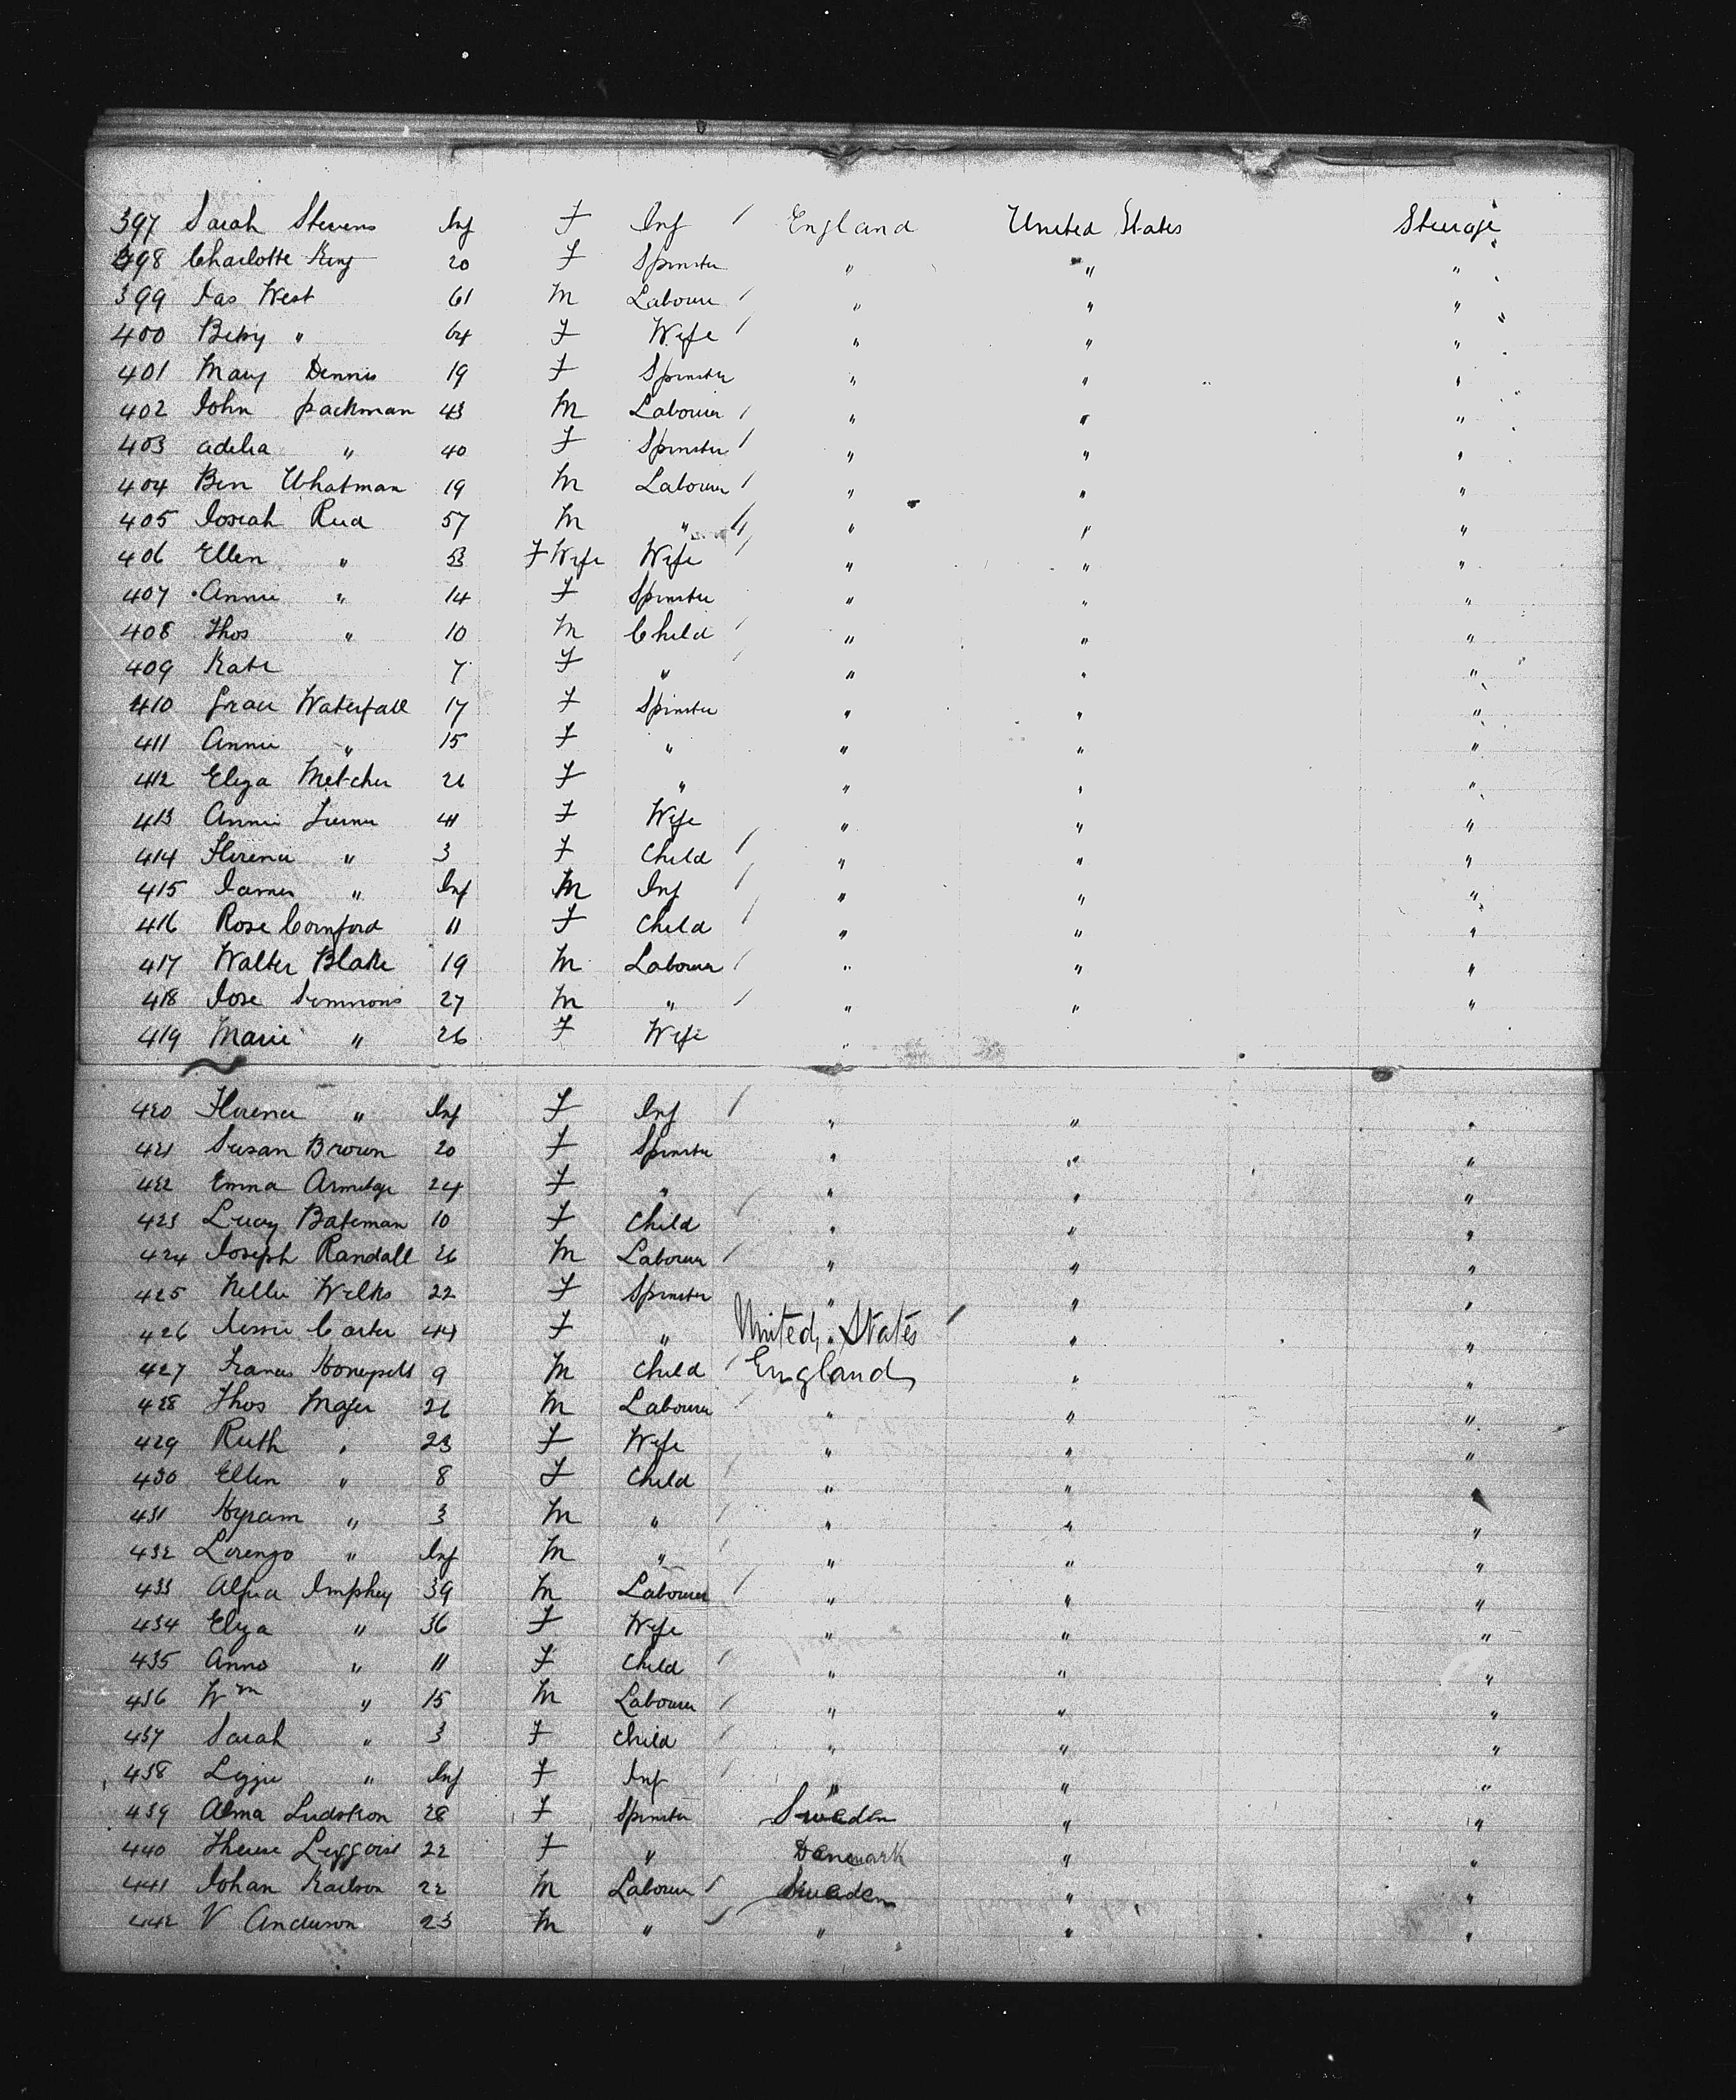 397 Sarah Stevens Inf F Inf / England United States Steerage
398 Charlotte King 20 F Spinster " " "
399 Jas West 61 M Labourer / " " "
400 Betsy " 64 F Wife / " " "
401 Mary Dennis 19 F Spinster " " "
402 John Packman 43 M Labourer / " " "
403 Adelia " 40 F Spinster / " " "
404 Ben Whatman 19 M Labourer / " " "
405 Josiah Reed 57 M " / " " "
406 Ellen " 53 F Wife Wife / " " "
407 Annie " 14 F Spinster " " "
408 Thos " 10 M Child / " " "
409 Kate 7 F " / " " "
410 Grace Waterfall 17 F Spinster " " "
411 Annie " 15 F " " " "
412 Eliza Metcher 26 F " " " "
413 Annie Turner 41 F Wife " " "
414 Florence " 3 F Child / " " "
415 James " Inf M Inf / " " "
416 Rose Cornford 11 F Child / " " "
417 Walter Blake 19 M Labourer / " " "
418 Jose Simmons 27 M " / " " "
419 Marie " 26 F Wife "
420 Florence " Inf F Inf / " " "
421 Susan Brown 20 F Spinster " " "
422 Emma Armitage 24 F " " " "
423 Lucy Bateman 10 F Child / " " "
424 Joseph Randall 26 M Labourer / " " "
425 Nellie Wilks 22 F Spinster " " "
426 Jessie Carter 44 F " United States / " "
427 Frances Honeysett 9 M Child / England " "
428 Thos Mayer 26 M Labourer / " " "
429 Ruth " 23 F Wife " " "
430 Ellen " 8 F Child / " "
431 Hyram " 3 M " / " " "
432 Lorenzo " Inf M " / " " "
433 Alfred Imphey 39 M Labourer / " " "
434 Eliza " 36 F Wife " " "
435 Anno " 11 F Child / " " "
436 Wm " 15 M Labourer / " " "
437 Sarah " 3 F Child / " " "
438 Lizzie " Inf F Inf / " " "
439 Alma Ludstron 28 F Spinster Sweden " "
440 22 F " Denmark " "
441 Johan Karlson 22 M Labourer / Sweden " "
442 V Anderson 23 M " / " " "